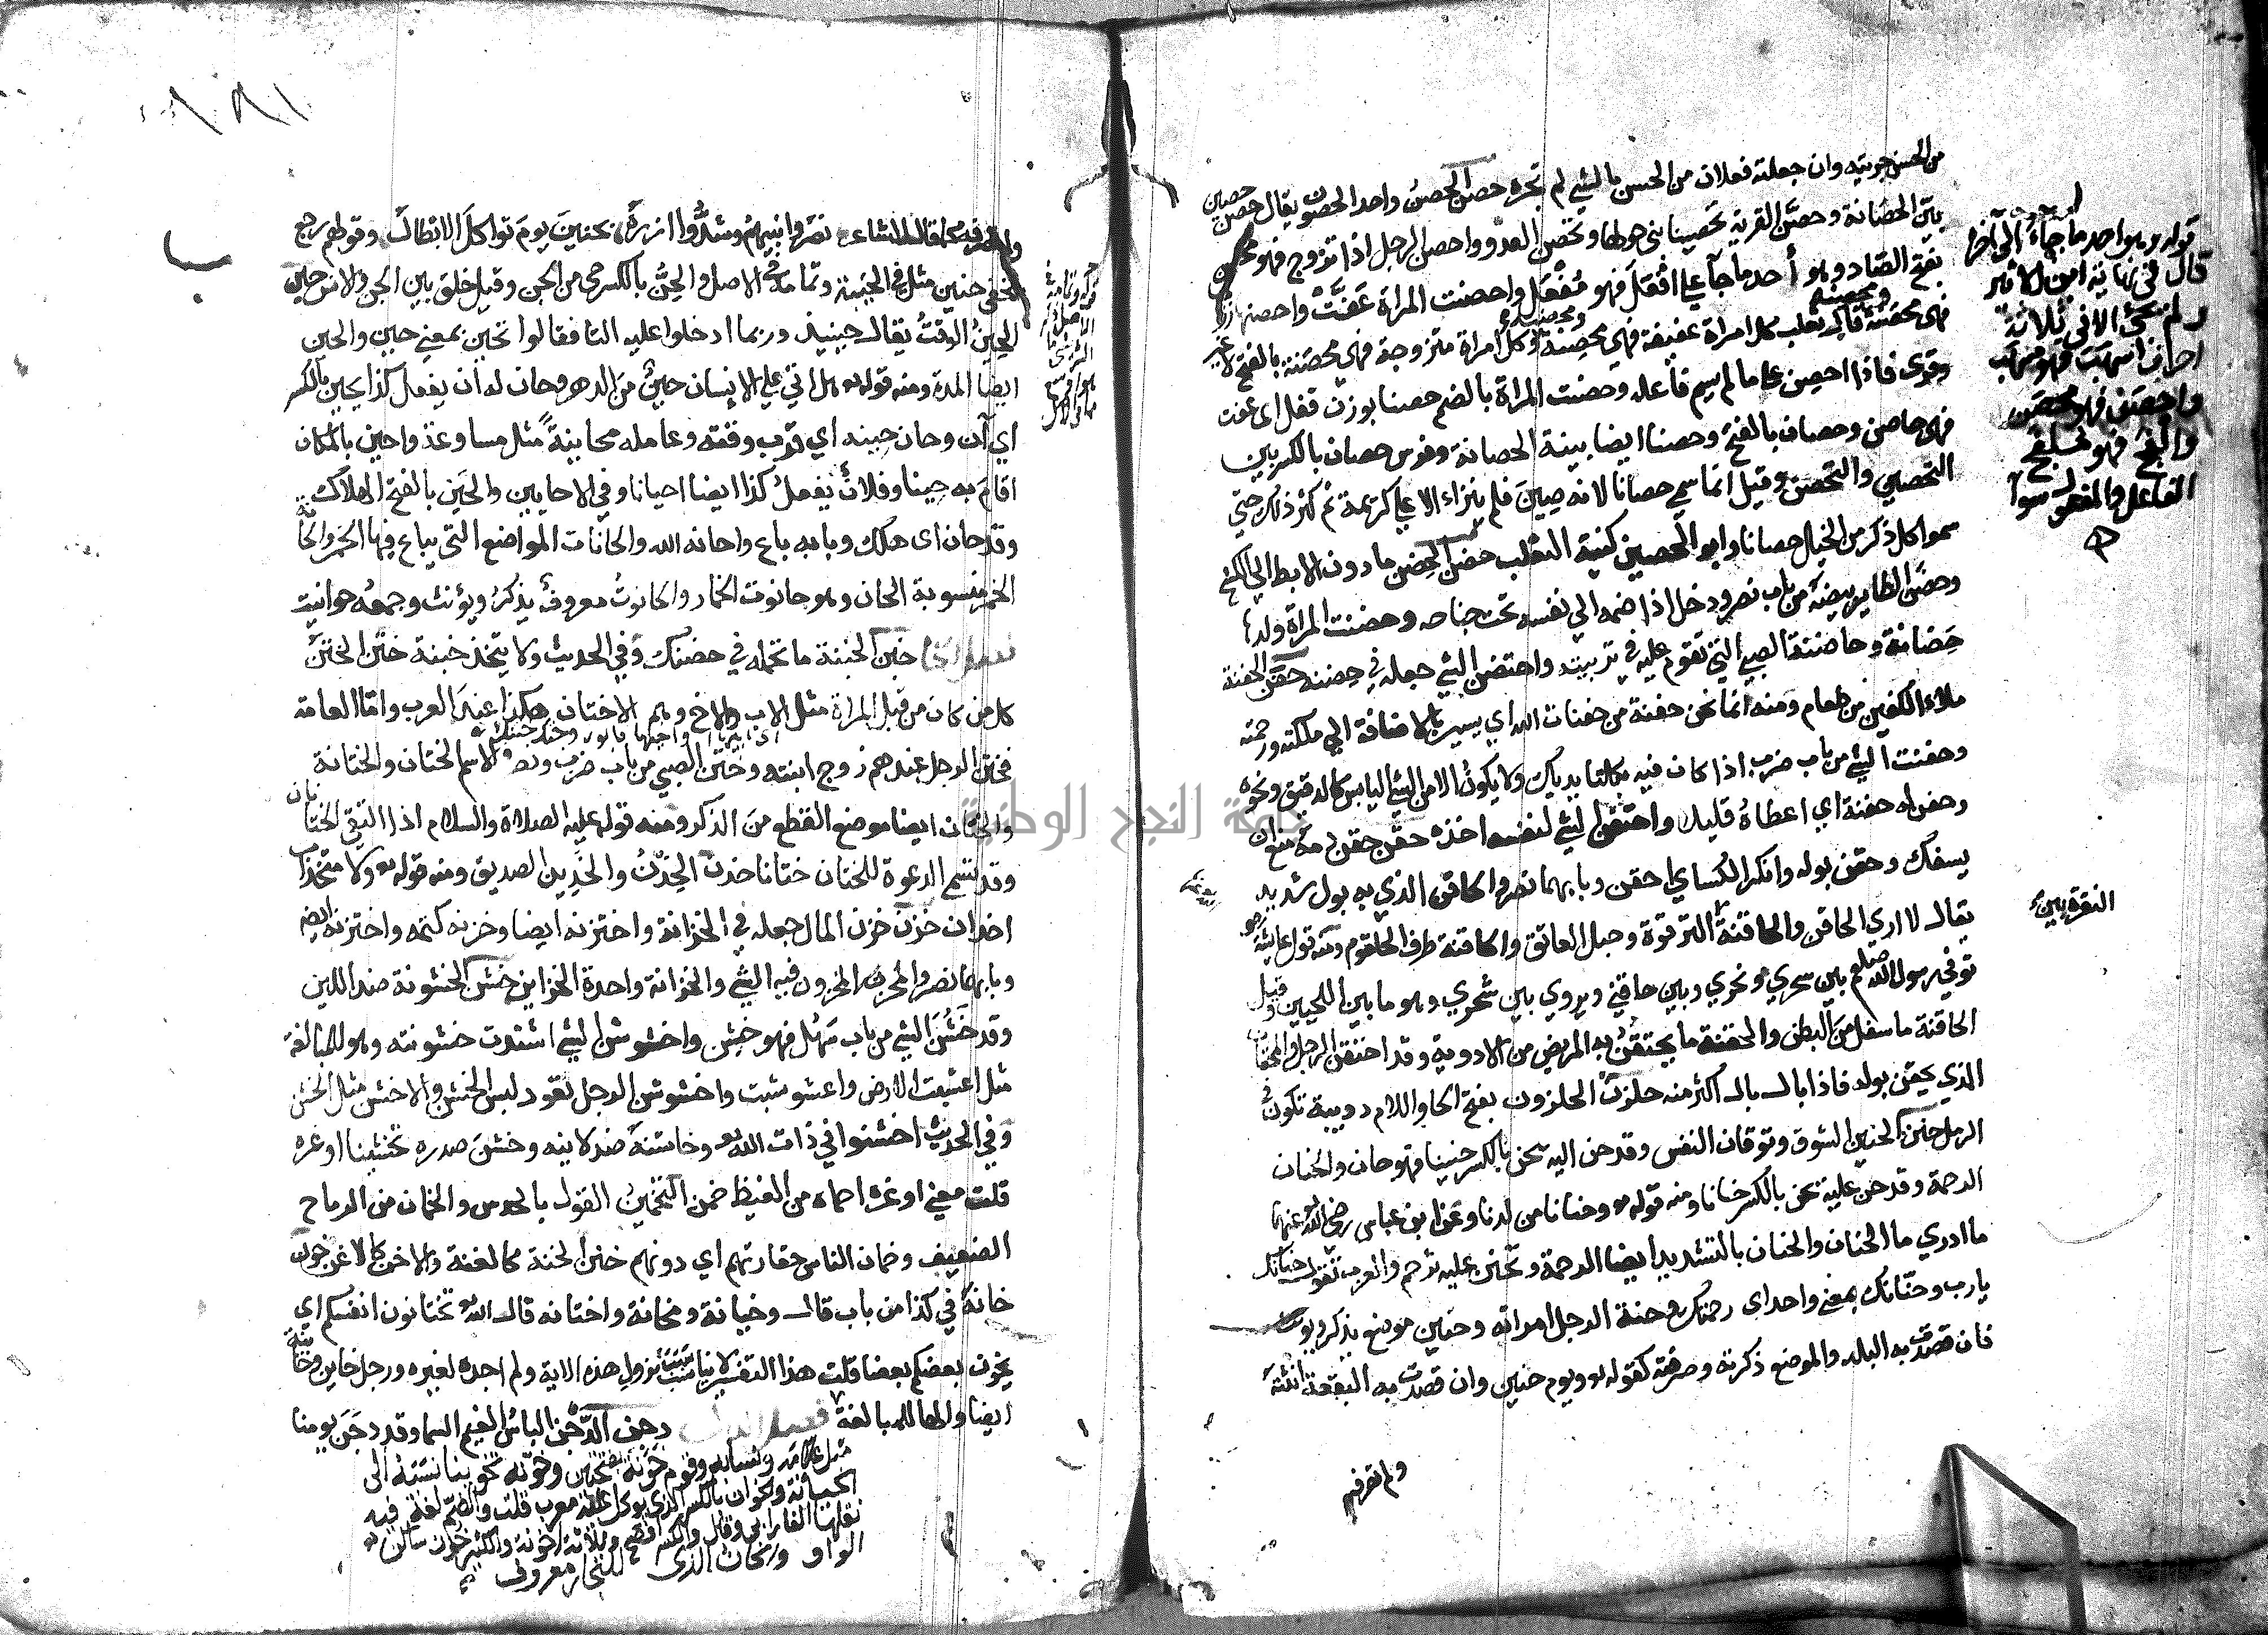 من الحسن جريته وان جعلته فعلان من الحسن بالشي لم تجره حصن الحصن واحد الحصون يقال حصن حصين
بين الحصانة وحصن القرية تحصينا بنى حولها وتحصن العدو واحصن الرجل اذا تزوج فهو محصن
بفتح الصاد وهو أحد ما جآ علي افعل فهو مفعل واحصنت المراة عفت واحصنها زوجها
فهي محصنة قال ثعلب كل امراة عفيفة فهي محصنة ومحصنة وكل امراة متزوجة فهي محصنة بالفتح لا غير
وقرى فاذا احصن علي ما لم يسم فاعله وحصنت المراة بالضم حصنا بوزن قفل اي عفت
فهي حاصن وحصان بالفتح وحصنا ايضا بينة الحصانة وفرس حصان بالكسر بين
التحصين والتحصن وقيل انما سمي حصانا لانه ضن بمائه فلم ينز الا علي كريمة ثم كثر ذلك حتي
سموا كل ذكر من الخيل حصانا وابو الحصين كنية الثعلب حضن الحضن ما دون الابط الي الكشح
وحضن الطاير بيضه من باب نصر ودخل اذا ضمه الي نفسه تحت جناحه وحضنت المراة ولدها
حضانة وحاضنة الصبي التي تقوم عليه في تربيته واحتضن الشي جعله في حضنه حفن الحفنة
ملاء الكفين من طعام ومنه انما نحن حفنة من حفنات الله اي يسير بالاضافة الي ملكه ورحمته
وحفنت الشي من باب ضرب اذا كان فيه بكلتا يديك ولا يكون الا من الشي اليابس كالدقيق ونحوه
وحفن له حفنة اي اعطاه قليلا واحتفن الشي لنفسه اخذه حقن حقن دمه منع ان
يسفك وحقن بوله وانكر الكساي احقن وبابهما نصر والحاقن الذي به بول شديد
يقال لا اري الحاقن والحاقنة الترقوة وحبل العاتق والحاقنة طرف الحلقوم ومنه قول عايشة
توفي رسول الله صلعم بين سحري ونحري وبين حاقنتي ويروي بين شجري وهو ما بين اللحيين وقيل
الحاقنة ما سفل من البطن والحقنة ما يحتقن به المريض من الادوية وقد احتقن الرجل والمحقان
الذي يحقن بوله فاذا بال بال اكثر منه حلزن الحلزون بفتح الحا واللام دويبة تكون في
الرمل حنن الحنين الشوق وتوقان النفس وقد حن اليه يحن بالكسر حنينا فهو حان والحنان
الرحمة وقد حن عليه يحن بالكسر حنانا ومنه قوله تع وحنانا من لدنا وعن ابن عباس رضي الله عنهما
ما ادري ما الحنان والحنان بالتشديد ايضا الرحمة وتحنن عليه ترحم والعرب تقول حنانك
يا رب وحنانيك بمعني واحد اي رحمتك وحنة الرجل امراته وحنين موضع يذكر ويونث
فان قصدت به البلد والموضع ذكرته وصرفته كقوله تع ويوم حنين وان قصدت به البقعة انثته
ولم تصرفه
قوله وهو احد ما جاء الى آخره
قال في نهاية ابن الاثير
ولم تجئ الا في ثلاثة
احرف اسهب فهو مسهب
واحصن فهو محصن
والفج فهو ملفج
الفاعل والمفعول سوآ
النقرة بين
ولم تصرفه كما قال الشاعر نصروا نبيهم وشدوا ازره بحنين يوم تواكل الابطال وقولهم رجع
بخفي حنين مثل في الخيبة وتمامه في الاصل والحن بالكسر حي من الجن وقيل خلق بين الجن والانس حين
الحين الوقت يقال حينيذ وربما ادخلوا عليه التا فقالوا تحين بمعني حين والحين
ايضا المدة ومنه قوله تع هل اتي علي الانسان حين من الدهر وحان له ان يفعل كذا يحين بالكسر
اي آن وحان حينه اي قرب وقته وعامله محاينة مثل مساوعة واحين بالمكان
اقام به حينا وفلان يفعل كذا ايضا احيانا وفي الاحايين والحين بالفتح الهلاك
وقد حان اي هلك وبابه باع واحانه الله والحانات المواضع التي يباع فيها الخمر والحانية
الخمر منسوبة الحان وهو حانوت الخمار والحانوت معروف يذكر ويؤنث وجمعه حوانيت
خبن الخبنة ما تحمله في حضنك وفي الحديث ولا يتخذ خبنة ختن الختن
كل من كان من قبل المراة مثل الاب والاخ وهم الاختان هكذا عند العرب واما العامة
فختن الرجل عندهم زوج ابنته وختن الصبي من باب ضرب ونصر والاسم الختان والختانة
والختان ايضا موضع القطع من الذكر ومنه قوله عليه الصلاة والسلام اذا التقي الختانان
وقد تسمي الدعوة للختان ختانا خدن الخدن والخدين الصديق ومنه قوله تع ولا متخذات
اخدان خزن خزن المال جعله في الخزانة واختزنه ايضا وخزنه كتمه واختزنه ايضا
وبابهما نصر والمخزن ما يخزن فيه الشي والخزانة واحدة الخزاين خشن الخشونة ضد اللين
وقد خشن الشي من باب سهل فهو خشن واخشوشن الشي اشتدت خشونته وهو للمبالغة
مثل اعشبت الارض واعشوشبت واخشوشن الرجل تعود لبس الخشن والاخشن مثل الخشن
وفي الحديث اخشنوا في ذات الله تع وخاشنه ضد لاينه وخشن صدره تخشينا اوغره
قلت معني اوغره احماه من الغيظ خمن التخمين القول بالحدس والخمان من الرماح
الضعيف وخمان الناس حقارتهم اي دونهم خنن الخنة كالغنة والاخن كالاغن خون
خانه في كذا من باب قال وخيانة ومخانة واختانه قال الله تع تختانون انفسكم اي
يخون بعضكم بعضا قلت هذا التفسير لا يناسب نزول هذه الاية ولم اجده لغيره ورجل خاين وخاينة
ايضا والها للمبالغة فصل الدال دجن الدجن الباس الغيم السما وقد دجن يومنا
مثل علامة ونسابة وقوم خونة بفتحتين وخونه تخوينا نسبه الى
الخيانة والخوان بالكسر الذي يوكل عليه معرب قلت والضم لغة فيه
نقلها الفارابي وقال والكسر افصح وثلاثة اخونة والكثير خون ساكن
الواو والخان الذي للتجار معروف
جامعة النجاح الوطنية